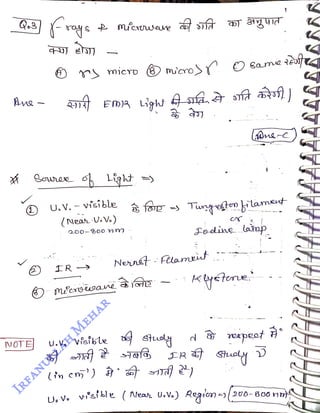 1
Q.3 γ-rays & microwave की गति का अनुपात
क्या होगा —
Ⓐ r > micro Ⓑ micro > r C same रहेगी
Ans - सारी EMR Light की गति से गति करेगी।
के वेग
Ans-C
* Source of Light ⇒
① U.V. - visible के लिए → Tungeston filament
(Near U.V.) or
200-800 nm Iodine lamp
② IR → Nernst - Filament
③ microwave के लिए — Klystone.
IRFANULLAH MEHAR
NOTE U.V. visible की study λ के respect में
की जाती है जबकि IR की study ῡ
(in cm⁻¹) में की जाती है।
U.V. visible (Near U.V.) Region → 200-800 nm